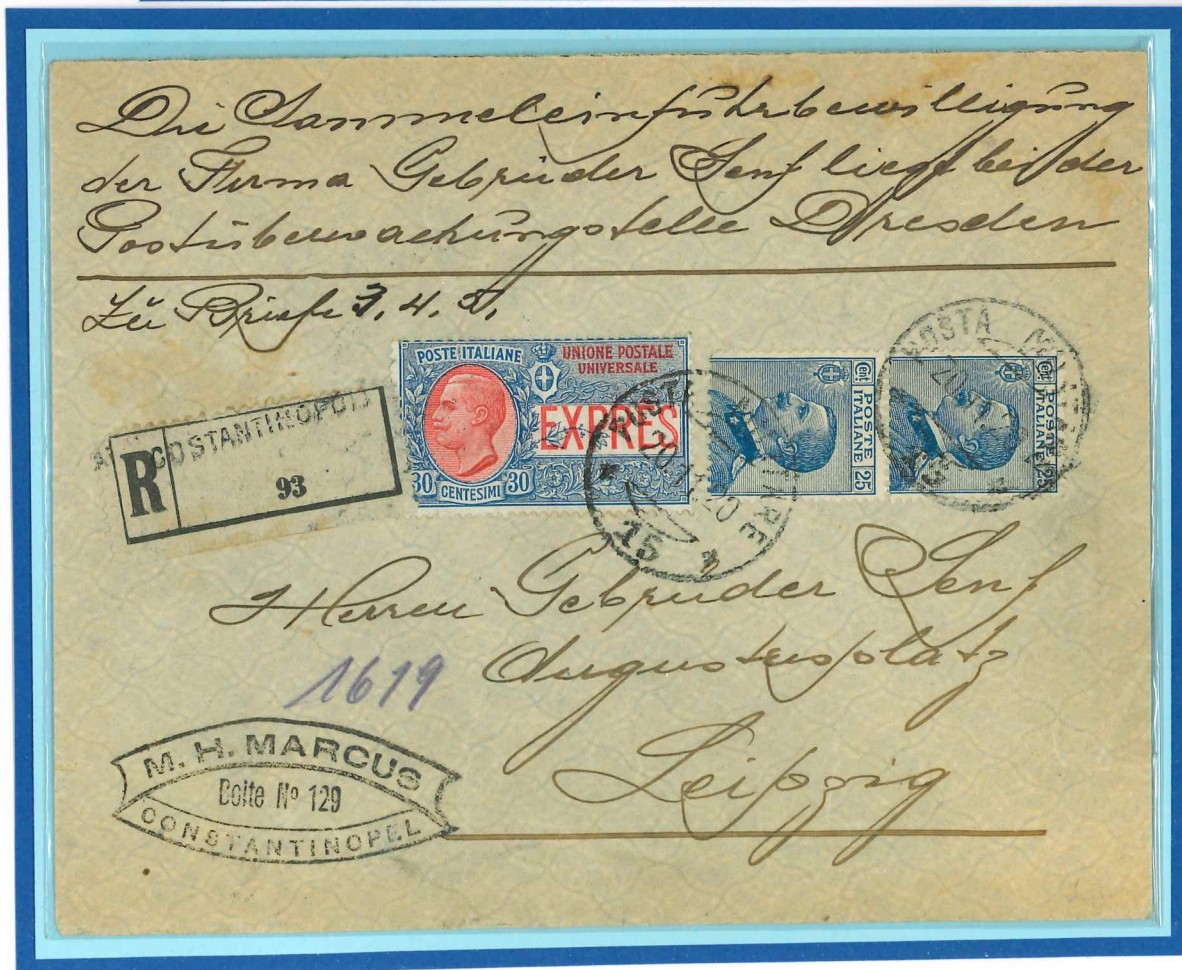 Die Sammeleinfuhrbewilligung
der Firma Gebrüder Senf liegt bei der
Postüberwachungstelle Dresden
Zu Briefe 3. 4. 5.
COSTANTINOPOLI
R
93
POSTE ITALIANE
UNIONE POSTALE
UNIVERSALE
EXPRES
30 CENTESIMI 30
POSTA MILITARE
15
Cent 25
POSTE
ITALIANE
Cent 25
POSTE
ITALIANE
POSTA MILITARE
15
Herren Gebrüder Senf
Augustusplatz
Leipzig
1619
M. H. MARCUS
Boite Nº 129
CONSTANTINOPEL